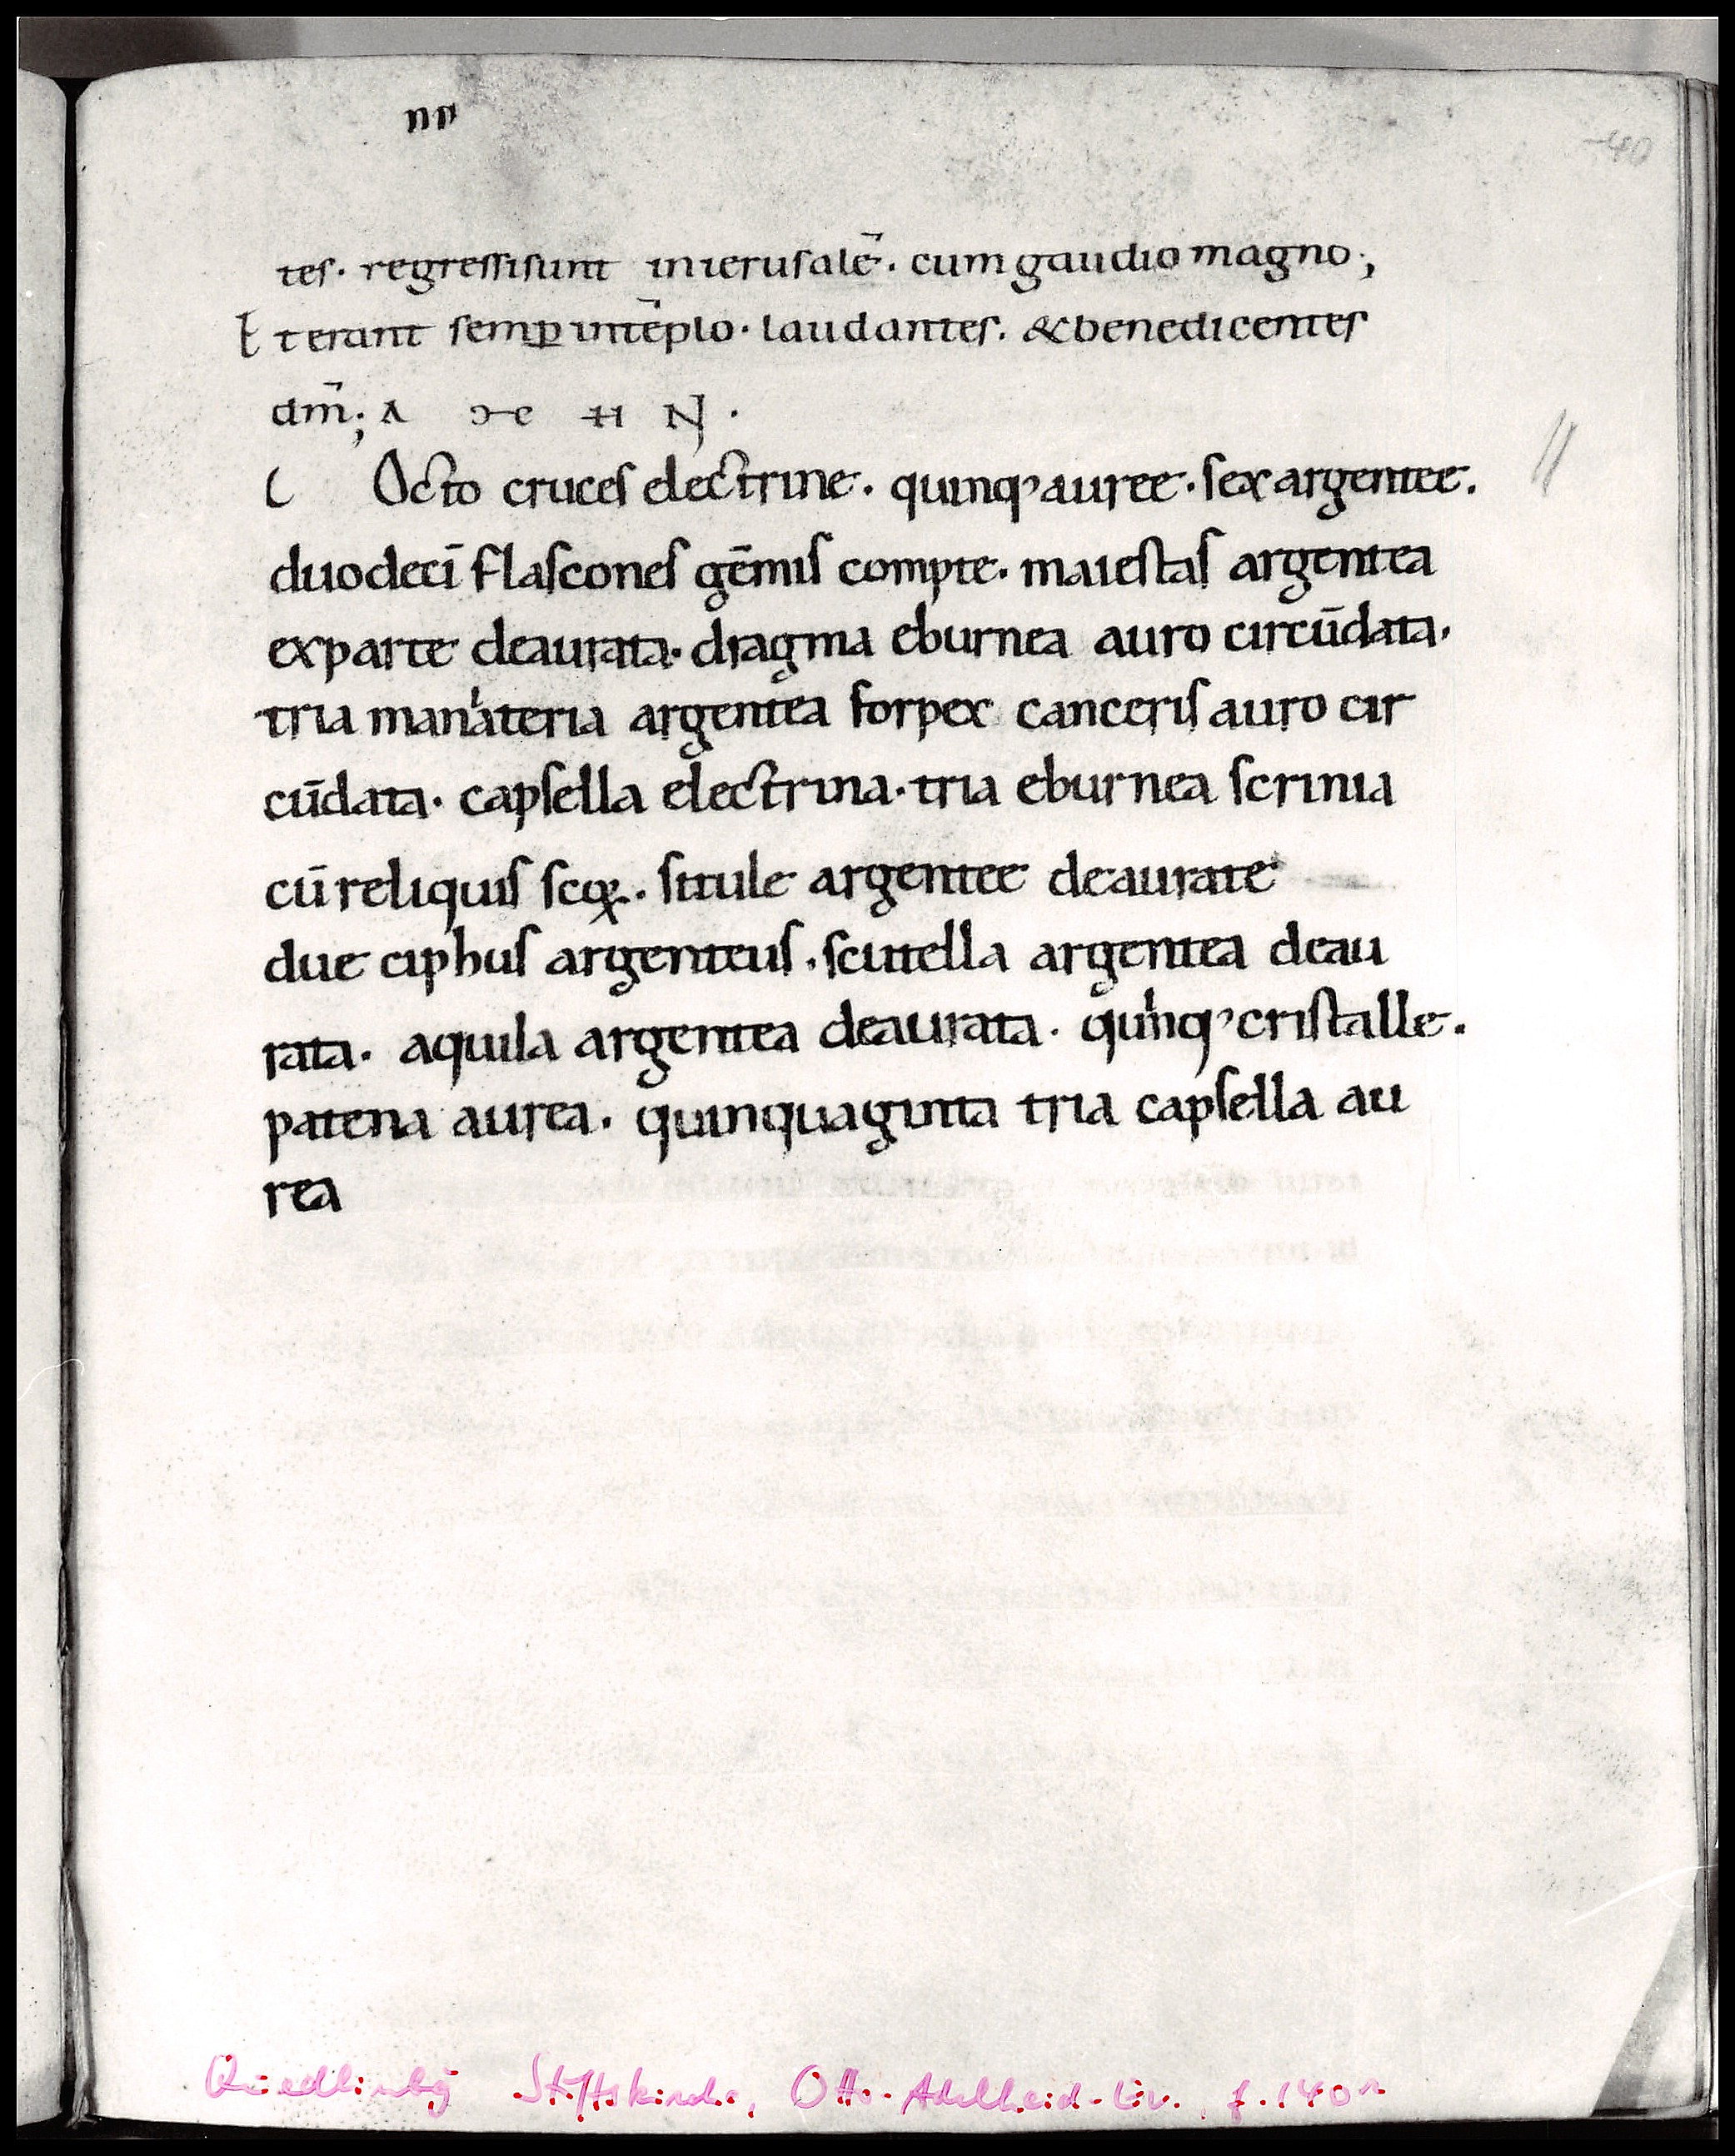 nn
140
teſ· regreſſiſunt inieruſalē. cum gaudio magno;
Et erant ſemꝑ intēplo· laudanteſ. &benedicenteſ
dm̄; A ϽC H N·
Octo cruceſ electrine. quinqꝰ auree· ſex argentee.
duodecī flaſconeſ gēmiſ compte. maieſtaſ argentea
exparte deaurata· dragma eburnea auro circūdata·
tria manateria argentea forpex canceriſ auro cir
cūdata· capſella electrina· tria eburnea ſcrinia
cū reliquiiſ ſcoꝝ. ſitule argentee deaurate
due ciphuſ argenteuſ. ſcutella argentea deau
rata. aquila argentea deaurata. quinqꝰ criſtalle.
patena aurea. quinquaginta tria capſella au
rea
Quedlinbg Stiftskirche, Otto-Adelheid-Ev. f. 140r